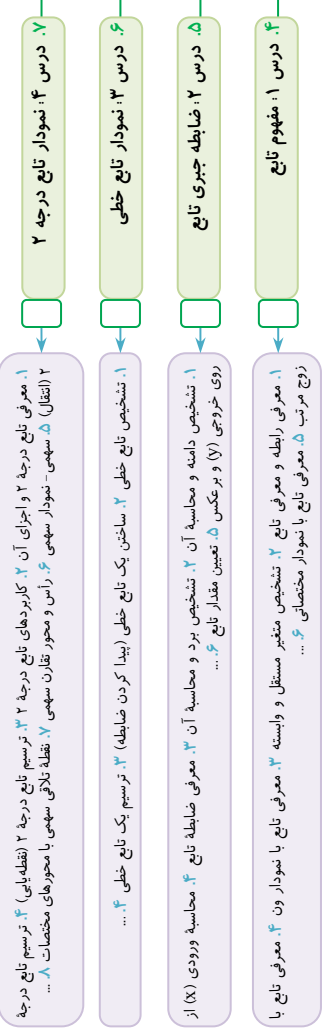 ۴. درس ۱: مفهوم تابع
۱. معرفی رابطه و معرفی تابع ۲. تشخیص متغیر مستقل و وابسته ۳. معرفی تابع با نمودار ون ۴. معرفی تابع با
زوج مرتب ۵. معرفی تابع با نمودار مختصاتی ۶. ...
۵. درس ۲: ضابطه جبری تابع
۱. تشخیص دامنه و محاسبهٔ آن ۲. تشخیص برد و محاسبهٔ آن ۳. معرفی ضابطهٔ تابع ۴. محاسبهٔ ورودی (x) از
روی خروجی (y) و برعکس ۵. تعیین مقدار تابع ۶. ...
۶. درس ۳: نمودار تابع خطی
۱. تشخیص تابع خطی ۲. ساختن یک تابع خطی (پیدا کردن ضابطه) ۳. ترسیم یک تابع خطی ۴. ...
۷. درس ۴: نمودار تابع درجه ۲
۱. معرفی تابع درجهٔ ۲ و اجزای آن ۲. کاربردهای تابع درجهٔ ۲ ۳. ترسیم تابع درجهٔ ۲ (نقطه‌یابی) ۴. ترسیم تابع درجهٔ
۲ (انتقال) ۵. سهمی - نمودار سهمی ۶. رأس و محور تقارن سهمی ۷. نقطهٔ تلاقی سهمی با محورهای مختصات ۸. ...